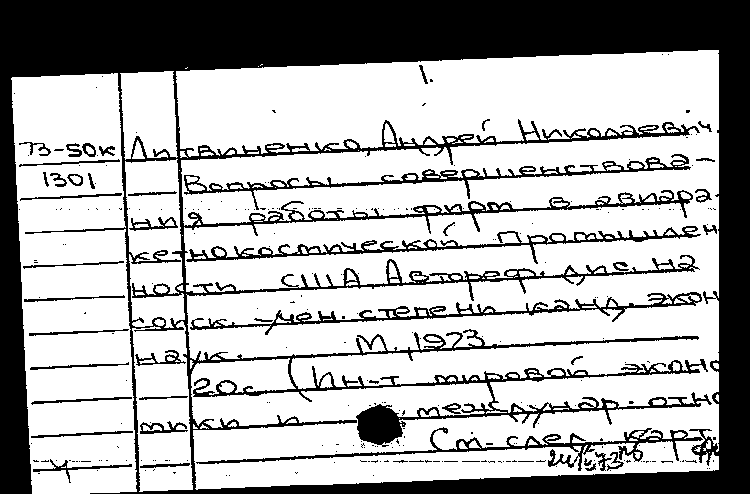 1.
73-50к Литвиненко, Андрей Николаевич.
1301 Вопросы совершенствова-
ния работы фирм в авиара-
кетнокосмической промышлен
ности США. Автореф. дис. на
соиск. учен. степени канд. экон
наук. М., 1973.
20с (Ин-т мировой эконо
мики и междунар. отно
См. след. карт.